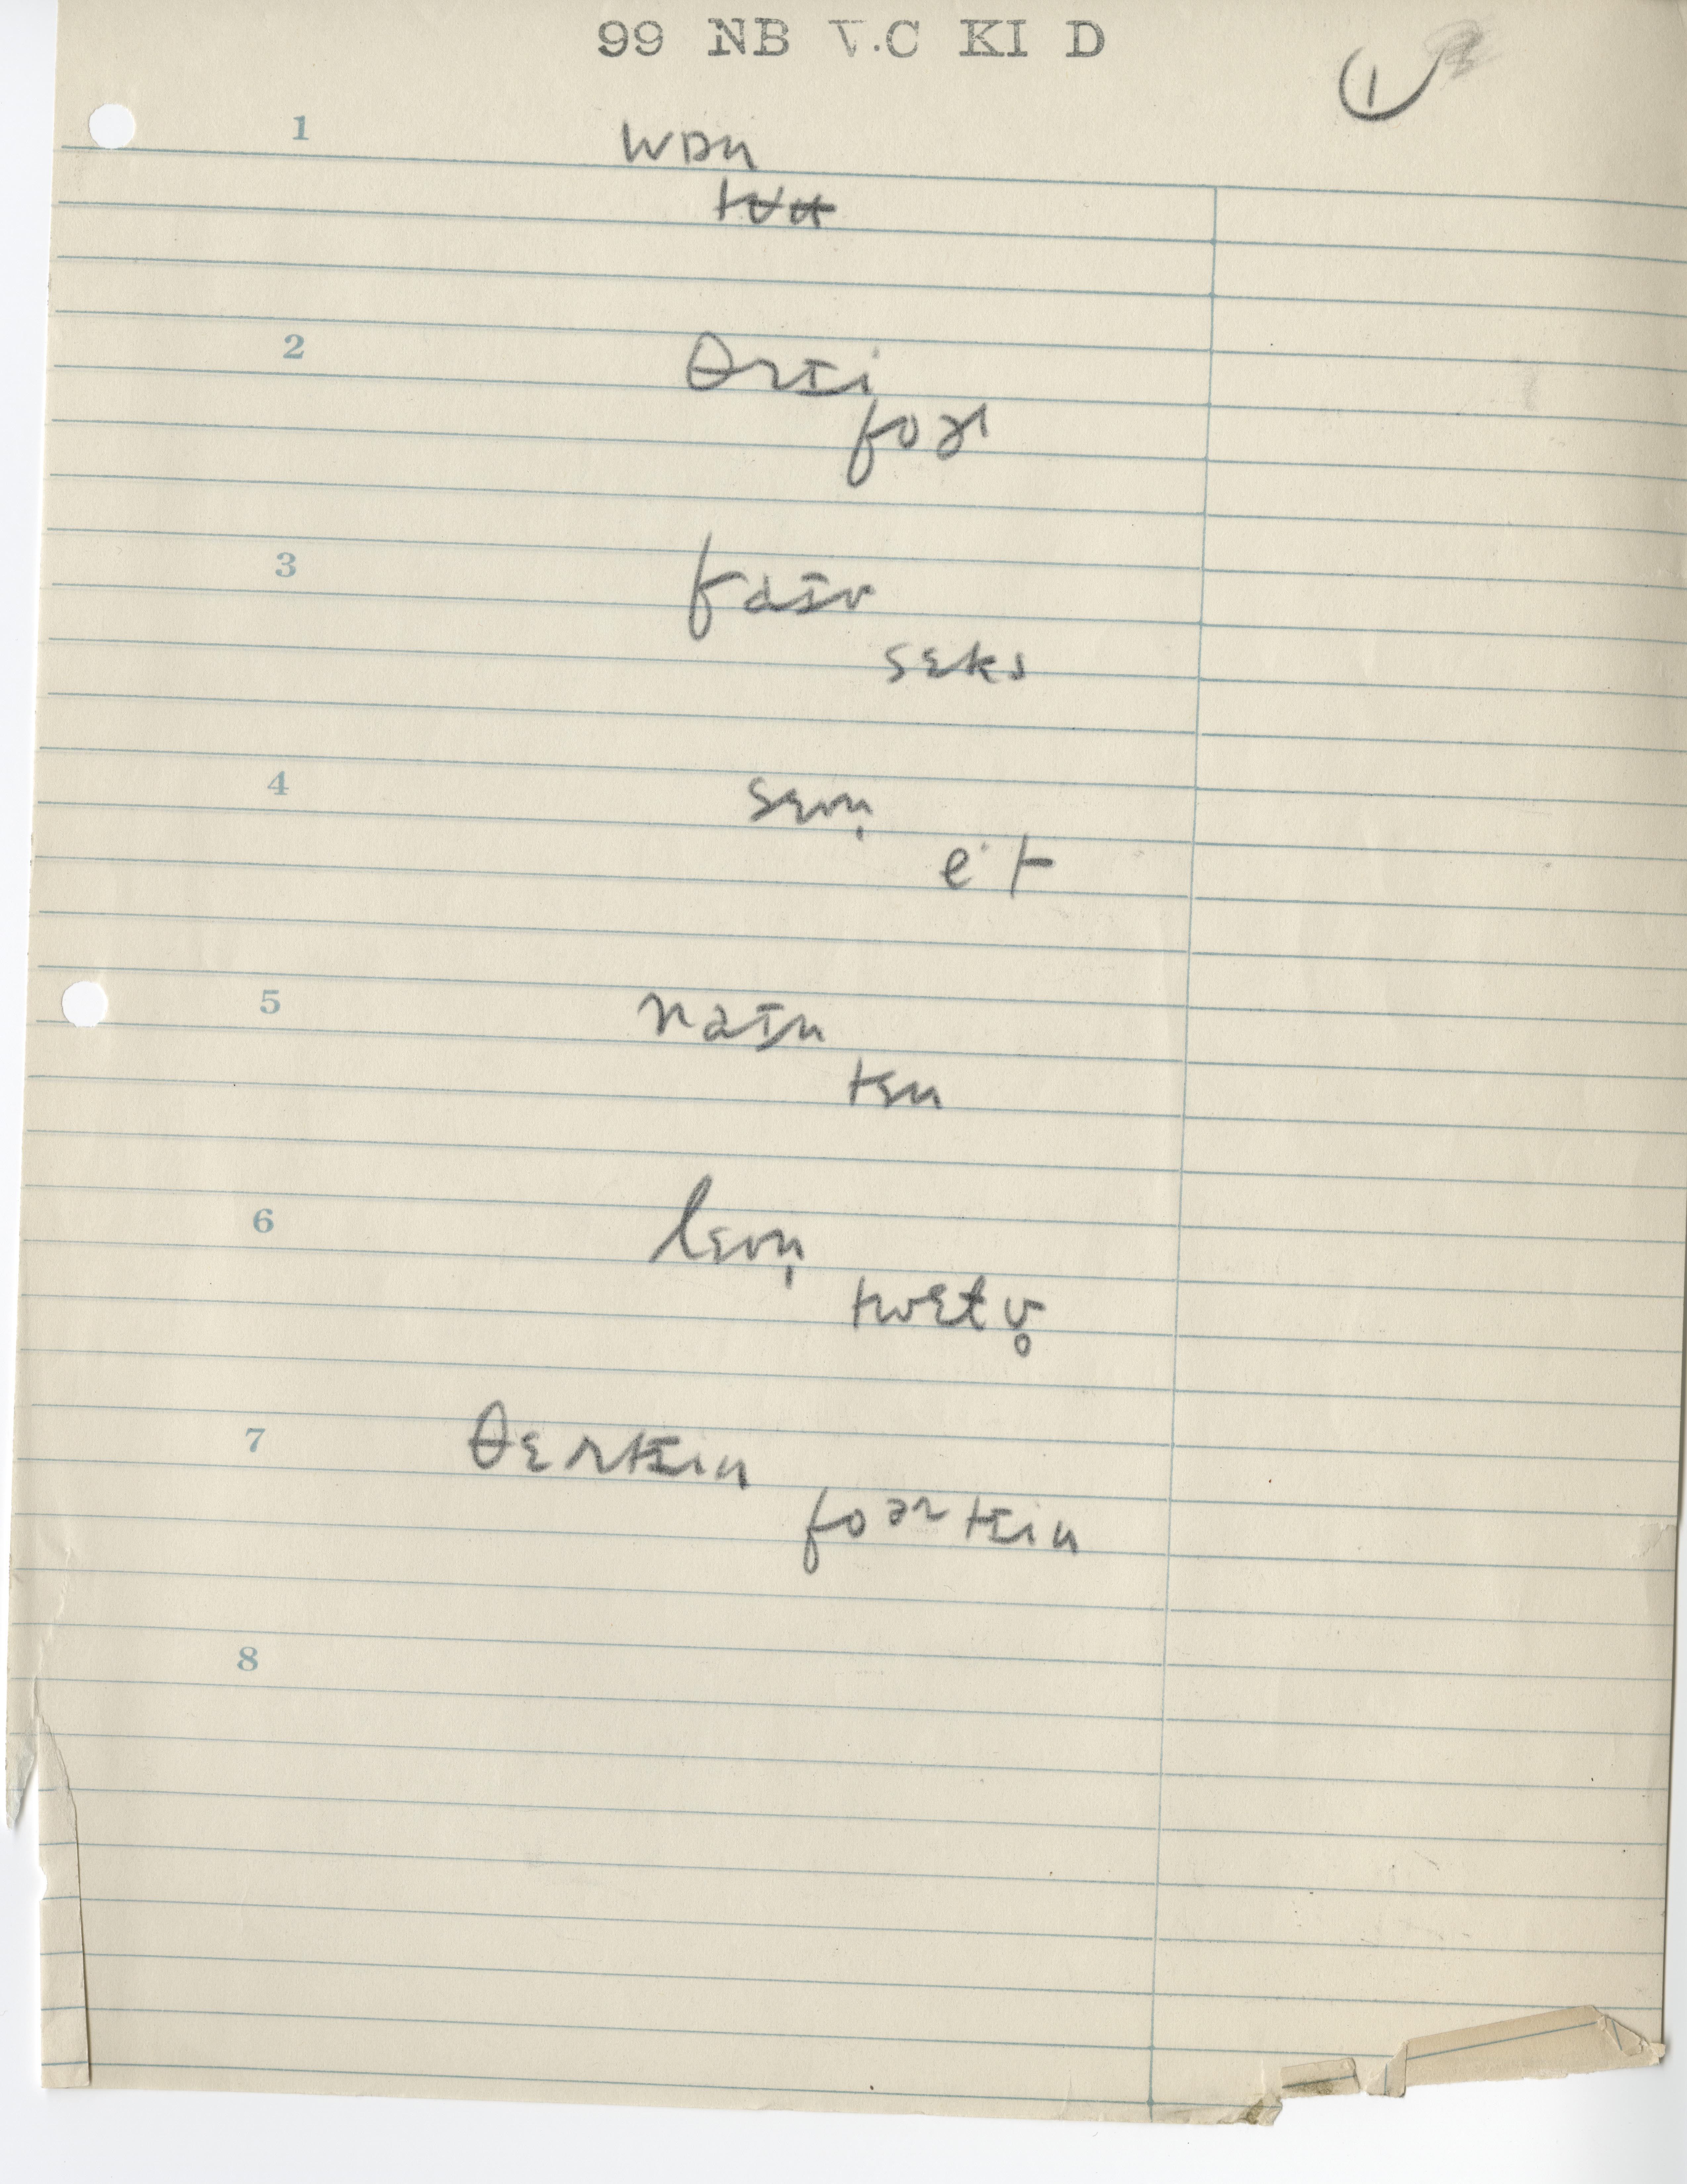 99 NB V.C KI D
1
1 wɒn
tʊu
2 θrɪi
foɚ
3 faɪv
sɛks
4 sɛvn̩
eˑt
5 naɪn
tɛn
6 lɛvn̩
twɛlv̥
7 θɛrtɪin
foərtɪin
8